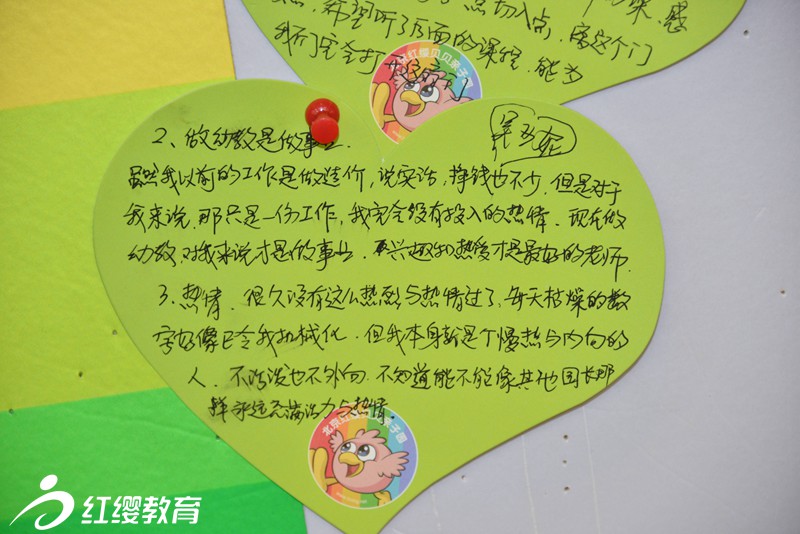 点切入点
希望听了后面的课程，能为
我们完全打开这扇门
红缨贝贝亲子园
第五在
2、做幼教是做事业.
虽然我以前的工作是做造价，说实话，挣钱也不少，但是对于
我来说，那只是一份工作，我完全没有投入的热情．现在做
幼教，对我来说才是做事业．兴趣和热爱才是最好的老师．
3、热情．很久没有这么热烈与热情过了，每天枯燥的数
字好像已令我机械化．但我本身就是个慢热与内向的
人．不活泼也不外向．不知道能不能像其他园长那
样永远充满活力与热情．
北京
亲子园
红缨教育